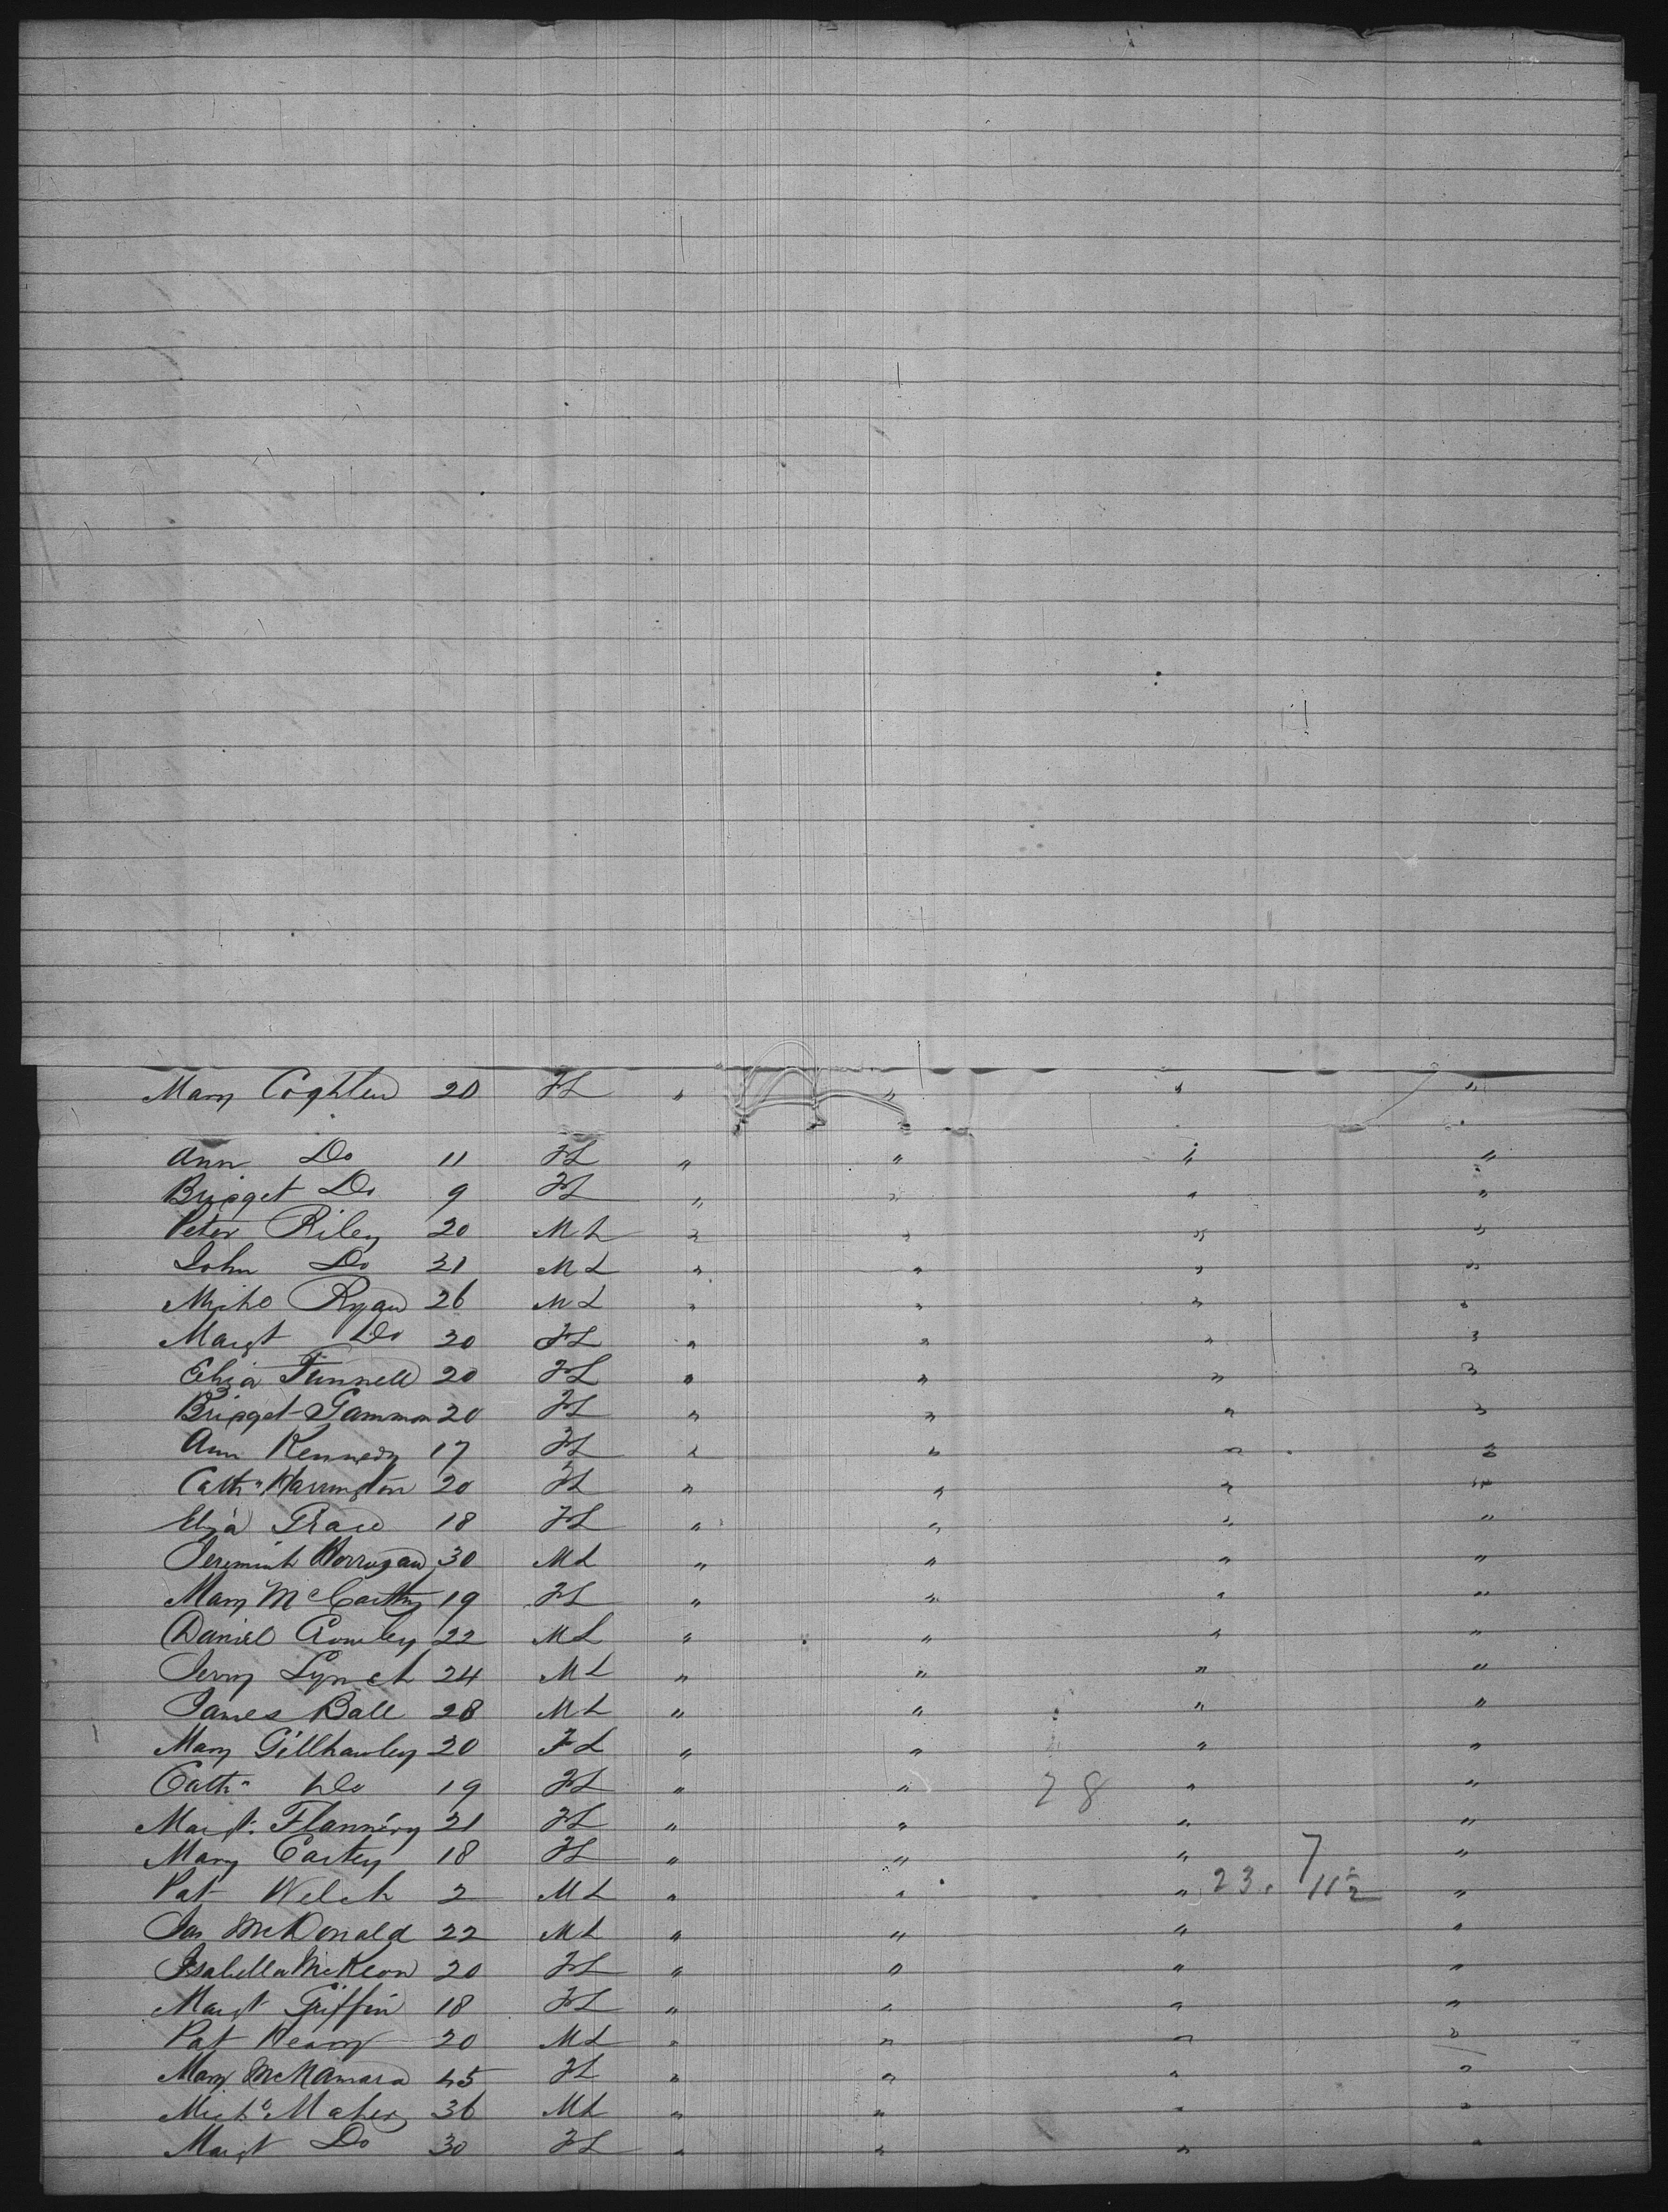 Mary Coghlen 20 FL " " " "
Ann Do 11 FL " " " "
Bridget Do 9 FL " " " "
Peter Riley 20 ML " " " "
John Do 21 ML " " " "
Micho Ryan 26 ML " " " "
Margt Do 20 FL " " " "
Eliza Funnell 20 FL " " " "
Bridget Gammon 20 FL " " " "
Ann Kennedy 17 FL " " " "
Cath" Harrington 20 FL " " " "
Eliza Grace 18 FL " " " "
Jeremiah Horrugan 30 ML " " " "
Mary McCarthy 19 FL " " " "
Daniel Crowley 22 ML " " " "
Jerry Lynch 24 ML " " " "
James Ball 28 ML " " " "
Mary Gillhawley 20 FL " " " "
Cath" Do 19 FL " " 28 " "
Margt. Flannery 21 FL " " " "
Mary Cartey 18 FL " " " 7 "
Pat Welch 2 ML " " " 23. 11 1/2 "
Jas McDonald 22 ML " " " "
Isabella McKeon 20 FL " " " "
Margt Griffin 18 FL " " " "
Pat 20 ML " " " "
Mary McNamara 45 FL " " " "
Micho Maher 36 ML " " " "
Margt Do 30 FL " " " "